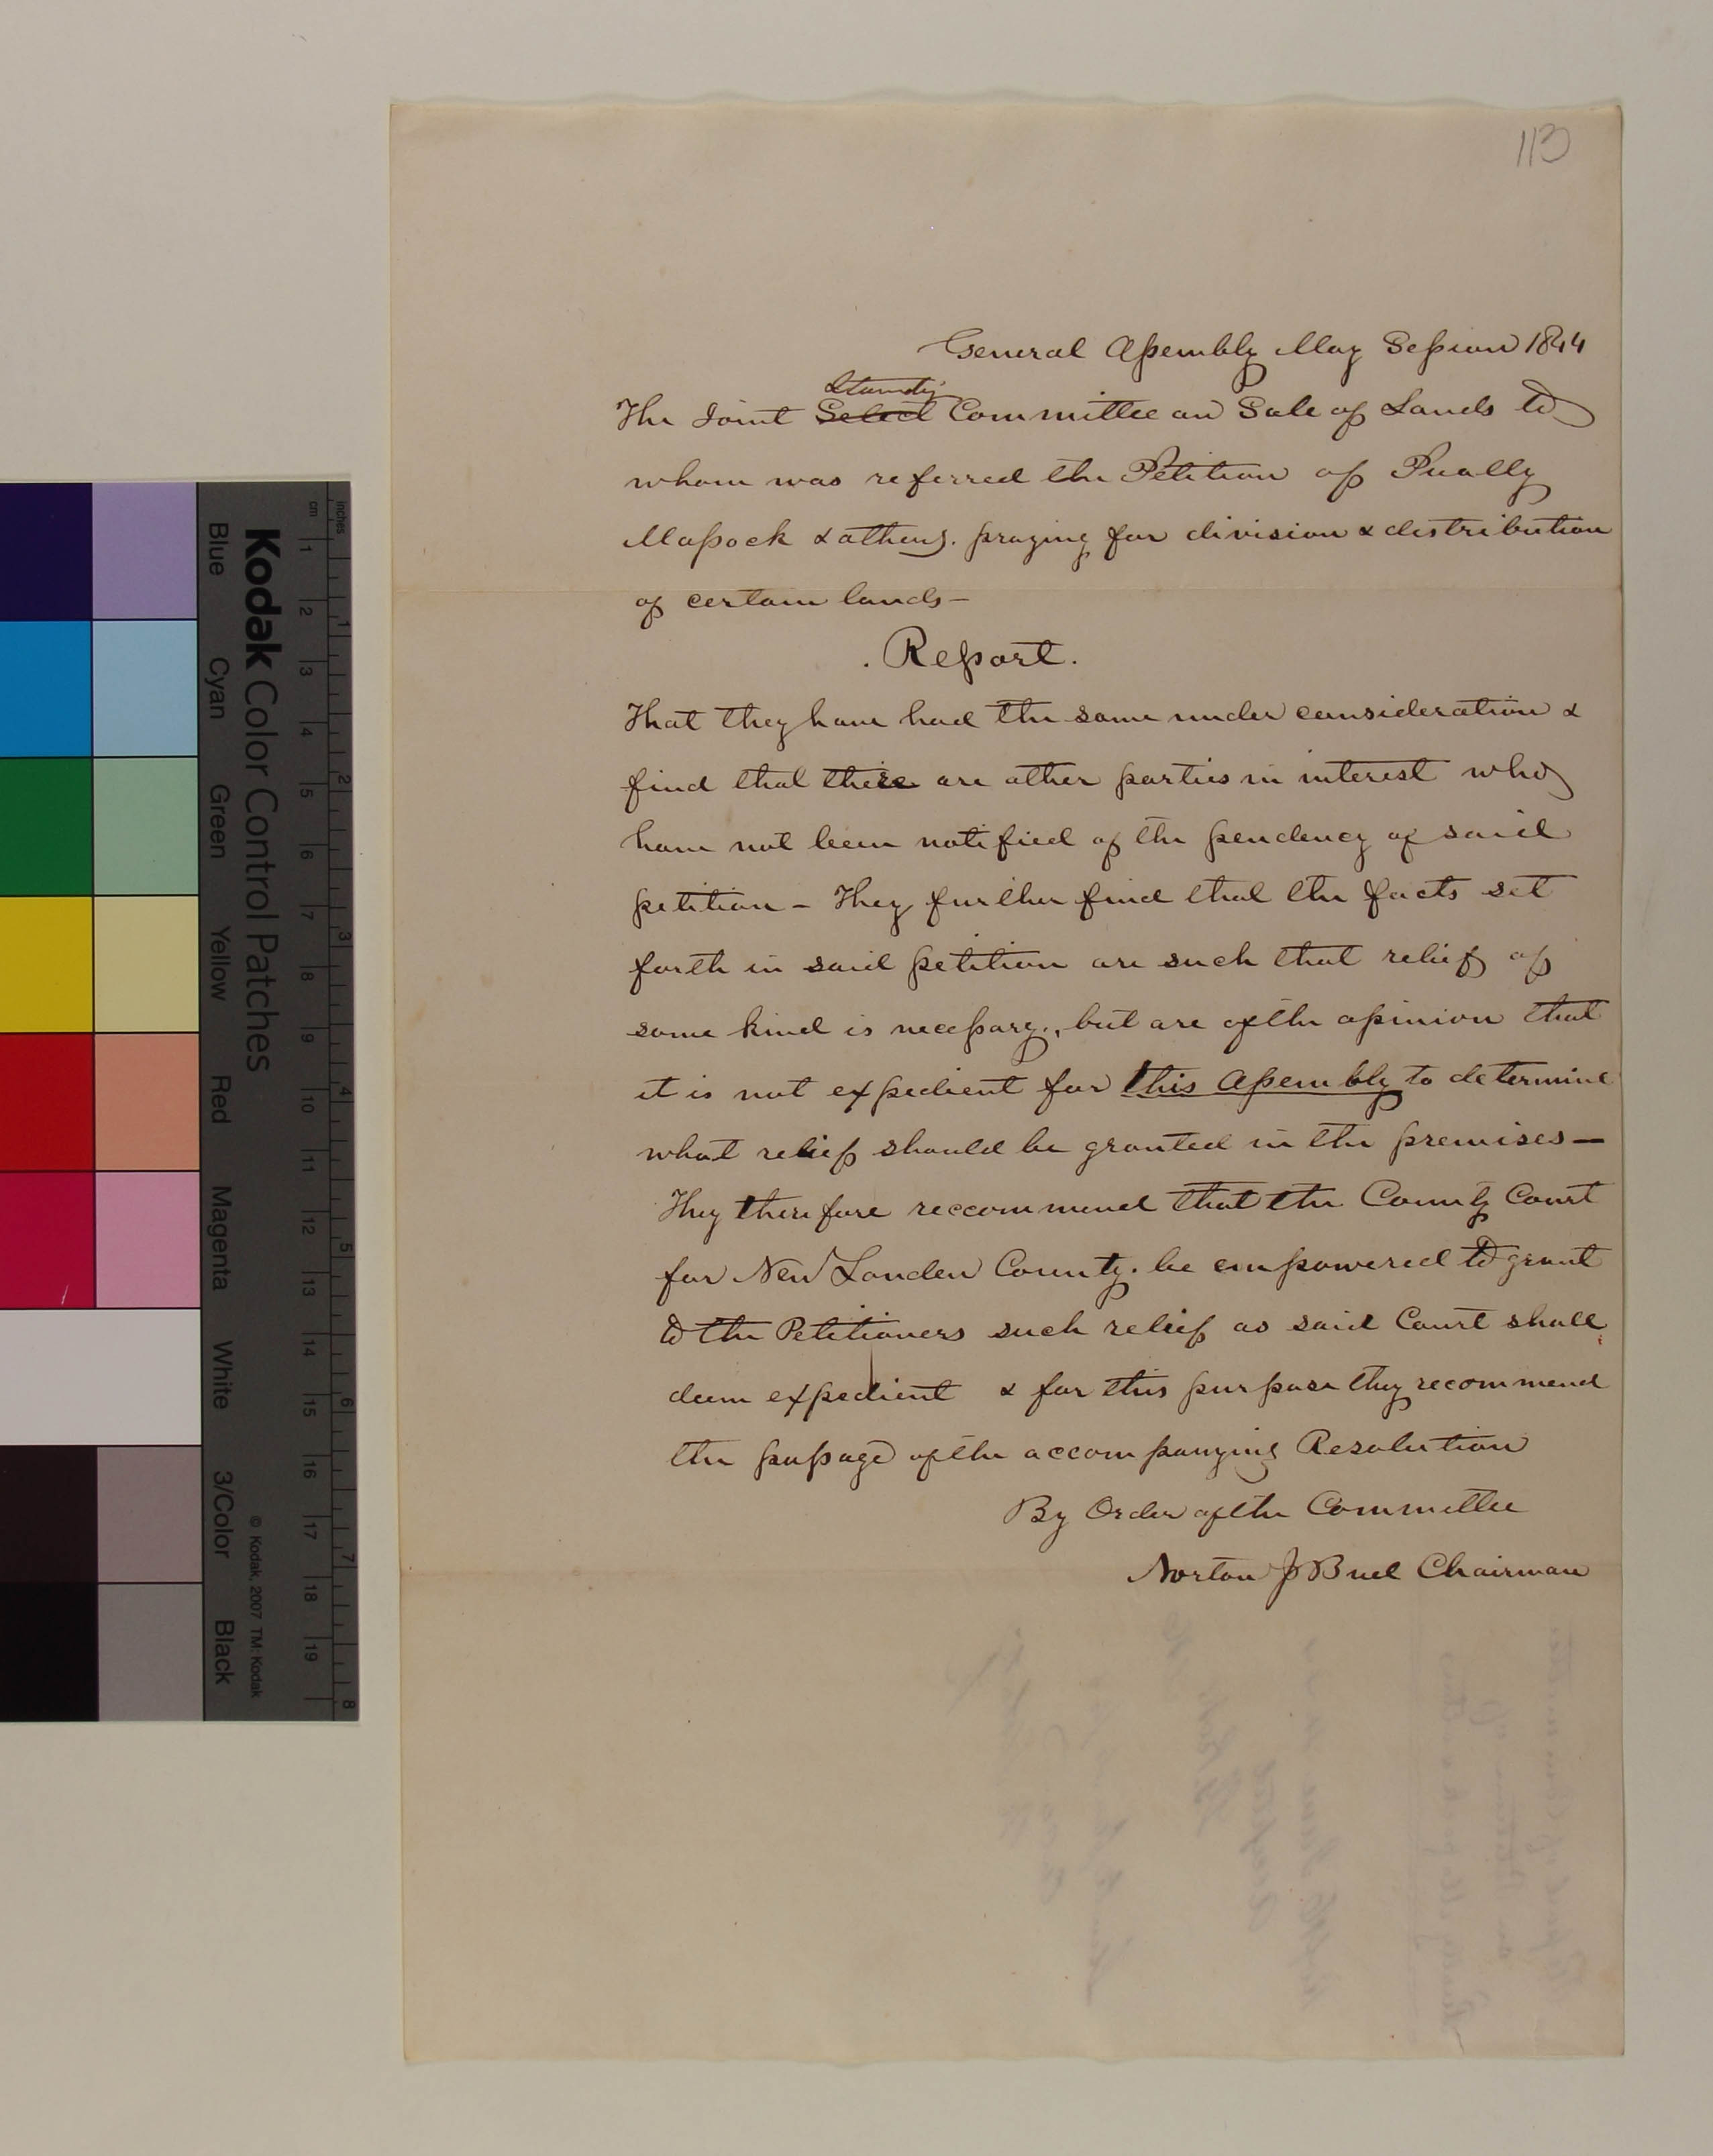 113
General Assembly May Session 1844
Standig
The Joint Select Committee on Sale of Lands to
whom was referred the Petition of Pually
Massock & others. praying for division & distribution
of certain lands—
. Report.
That they have had the same under consideration &
find that there are other parties in interest who
have not been notified of the pendency of said
petition – They further find that the facts set
forth in said petition are such that relief of
some kind is necessary., but are of the opinion that
it is not expedient for this Assembly to determine
what relief should be granted in the premises—
They therefore reccommend that the County Court
for New London County. be empowered to grant
to the Petitioners such relief as said Court shall
deem expedient & for this purpose they recommend
the passage of the accompanying Resolution
By Order of the Committee
Norton J Buel Chairman
inches
cm
1 2 3 4 5 6 7 8
1 2 3 4 5 6 7 8 9 10 11 12 13 14 15 16 17 18 19
Kodak Color Control Patches
© Kodak, 2007 TM: Kodak
Blue Cyan Green Yellow Red Magenta White 3/Color Black